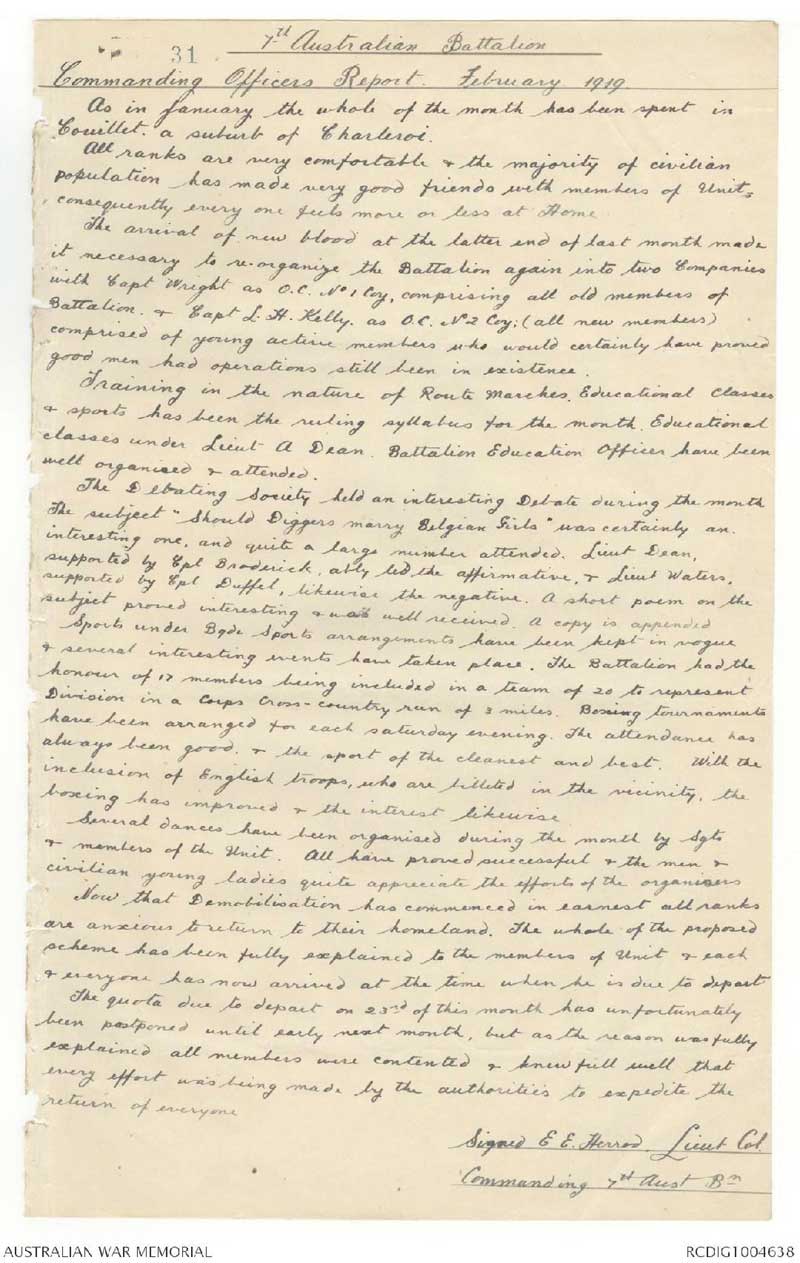 31
7th Australian Battalion
Commanding Officers Report. February 1919.
As in January the whole of the month has been spent in
Couillet. a suburb of Charleroi.
All ranks are very comfortable & the majority of civilian
population has made very good friends with members of Unit,
consequently every one feels more or less at Home
The arrival of new blood at the latter end of last month made
it necessary to re-organize the Battalion again into two Companies
with Capt Wright as O.C. No 1 Coy, comprising all old members of
Battalion. & Capt L. H. Kelly. as O.C. No 2 Coy; (all new members)
comprised of young active members who would certainly have proved
good men had operations still been in existence.
Training in the nature of Route Marches. Educational Classes
& sports has been the ruling syllabus for the month. Educational
classes under Lieut A Dean. Battalion Education Officer have been
well organised & attended.
The Debating Society held an interesting Debate during the month
The subject "Should Diggers marry Belgian Girls" was certainly an.
interesting one, and quite a large number attended. Lieut Dean,
supported by Cpl Broderick, ably led the affirmative, & Lieut Waters,
supported by Cpl Duffel, likewise the negative. A short poem on the
subject proved interesting & was well received. A copy is appended
Sports under Bgde Sports arrangements have been kept in vogue
& several interesting events have taken place. The Battalion had the
honour of 17 members being included in a team of 20 to represent
Division in a Corps Cross-country run of 3 miles. Boxing tournaments
have been arranged for each saturday evening. The attendance has
always been good. & the sport of the cleanest and best. With the
inclusion of English troops, who are billeted in the vicinity, the
boxing has improved & the interest likewise
Several dances have been organised during the month by Sgts
& members of the Unit. All have proved successful & the men &
civilian young ladies quite appreciate the efforts of the organisers
Now that Demobilisation has commenced in earnest all ranks
are anxious to return to their homeland. The whole of the proposed
scheme has been fully explained to the members of Unit & each
& everyone has now arrived at the time when he is due to depart
The quota due to depart on 23rd of this month has unfortunately
been postponed until early next month, but as the reason was fully
explained all members were contented & knew full well that
every effort was being made by the authorities to expedite the
return of everyone
Signed E E. Herrod. Lieut Col.
Commanding 7th Aust Bn
AUSTRALIAN WAR MEMORIAL
RCDIG1004638